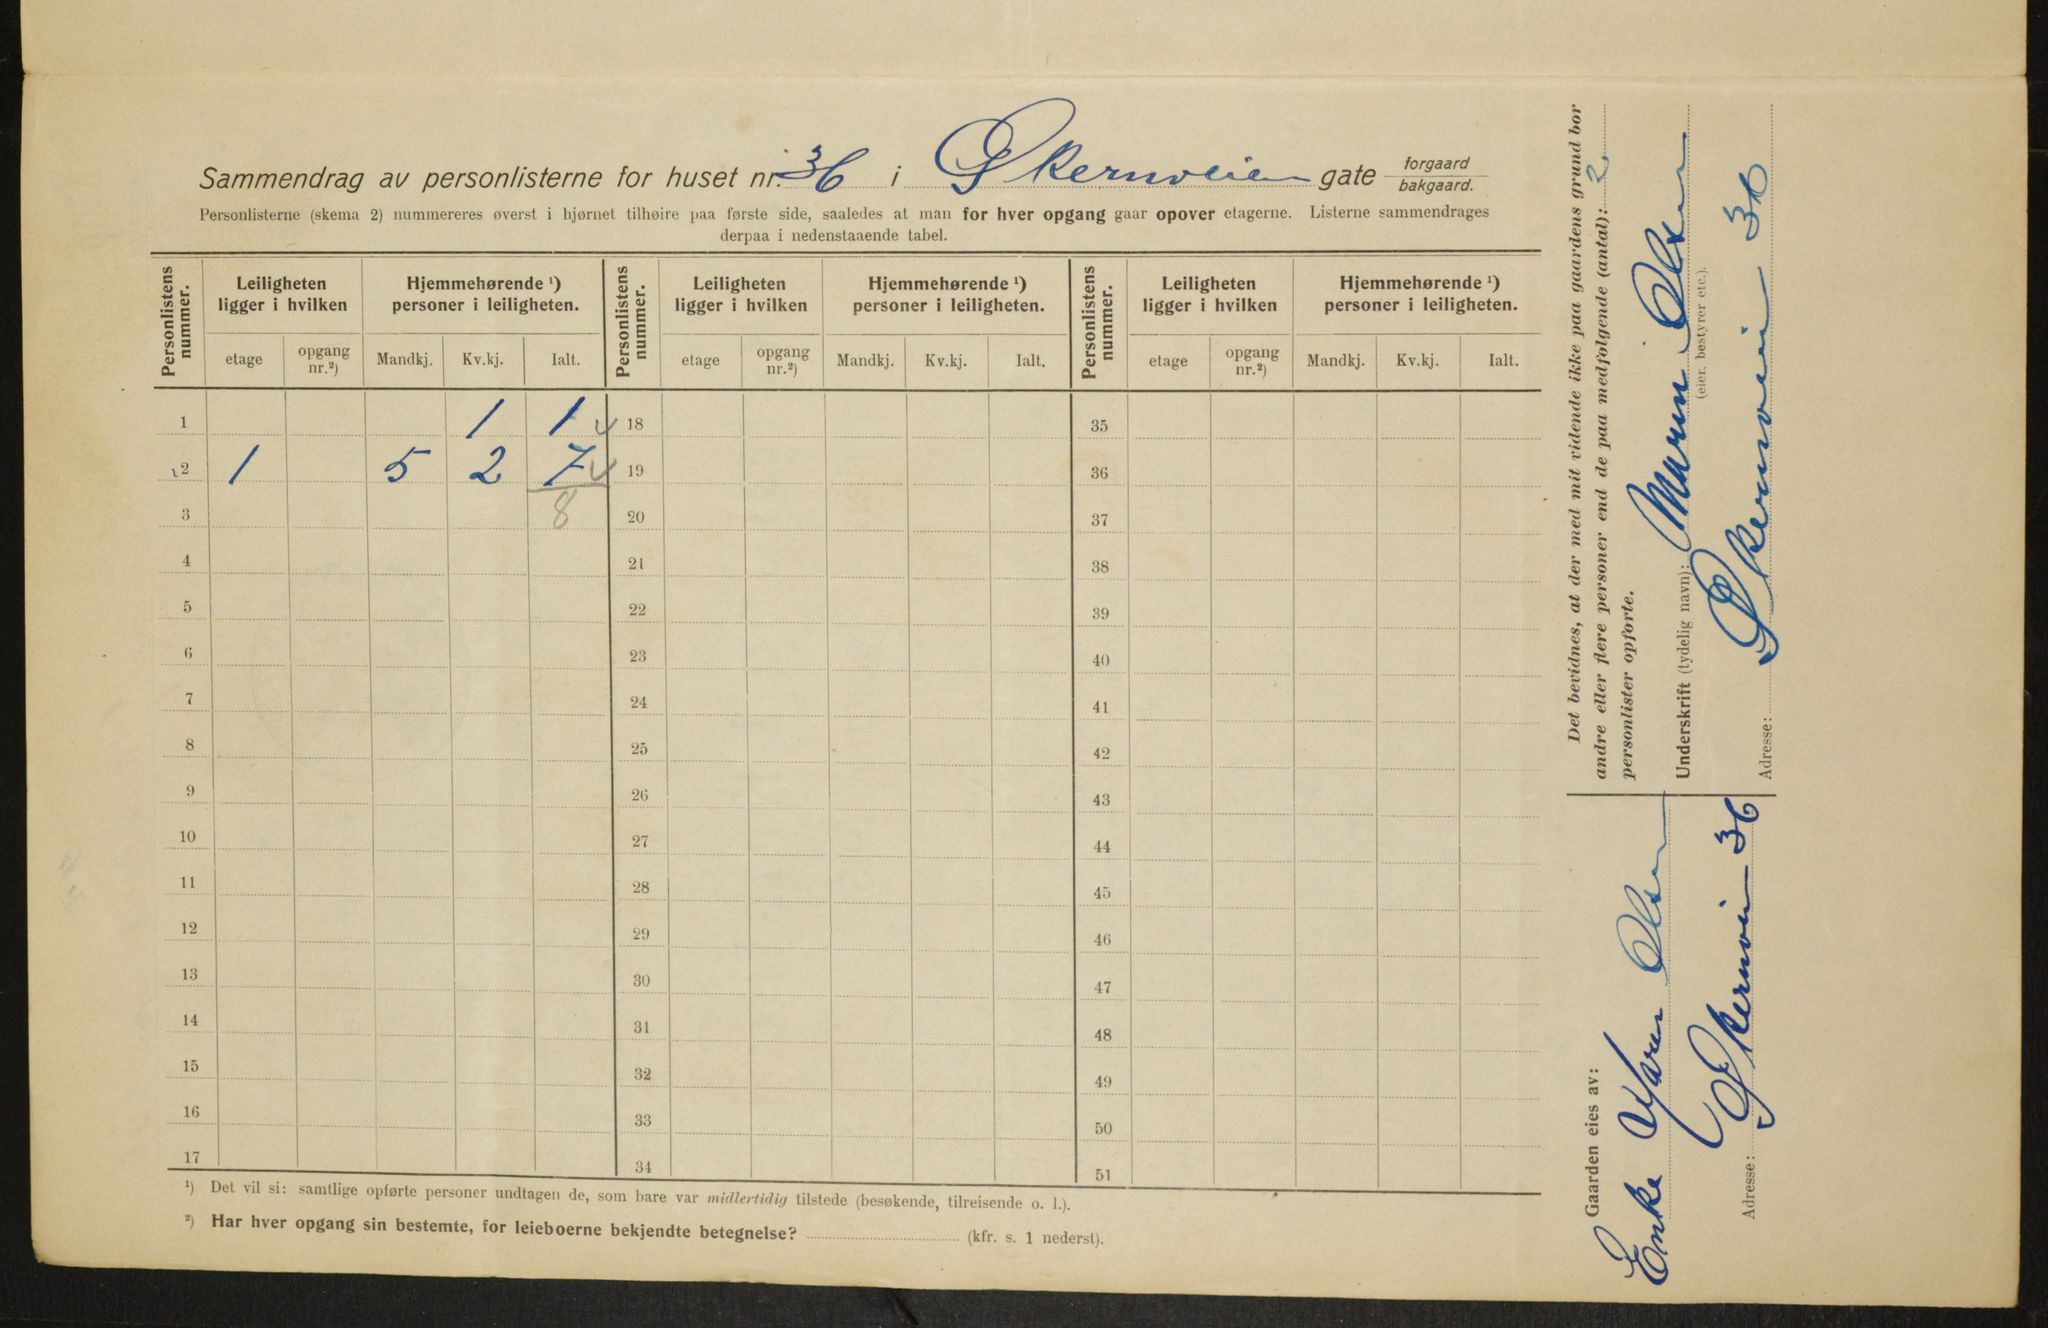 Sammendrag av personlisterne for huset nr. 36 i Økernveien gate forgaard bakgaard.
Personlisterne (skema 2) nummereres øverst i hjørnet tilhøire paa første side, saaledes at man for hver opgang gaar opover etagerne. Listerne sammendrages
derpaa i nedenstaaende tabel.
Personlistens nummer. Leiligheten ligger i hvilken Hjemmehørende ¹) personer i leiligheten. Personlistens nummer. Leiligheten ligger i hvilken Hjemmehørende ¹) personer i leiligheten. Personlistens nummer. Leiligheten ligger i hvilken Hjemmehørende ¹) personer i leiligheten.
etage opgang nr.²) Mandkj. Kv.kj. Ialt. etage opgang nr.²) Mandkj. Kv.kj. Ialt. etage opgang nr.²) Mandkj. Kv.kj. Ialt.
1 1 1 18 35
2 1 5 2 7 19 36
3 8 20 37
4 21 38
5 22 39
6 23 40
7 24 41
8 25 42
9 26 43
10 27 44
11 28 45
12 29 46
13 30 47
14 31 48
15 32 49
16 33 50
17 34 51
¹) Det vil si: samtlige opførte personer undtagen de, som bare var midlertidig tilstede (besøkende, tilreisende o. l.).
²) Har hver opgang sin bestemte, for leieboerne bekjendte betegnelse? (kfr. s. 1 nederst).
Det bevidnes, at der med mit vidende ikke paa gaardens grund bor
andre eller flere personer end de paa medfølgende (antal): 2
personlister opførte.
Underskrift (tydelig navn): Maren Olsen
(eier, bestyrer etc.).
Adresse: Økernveien 36
Gaarden eies av:
Enke Maren Olsen
Adresse: Økernveien 36